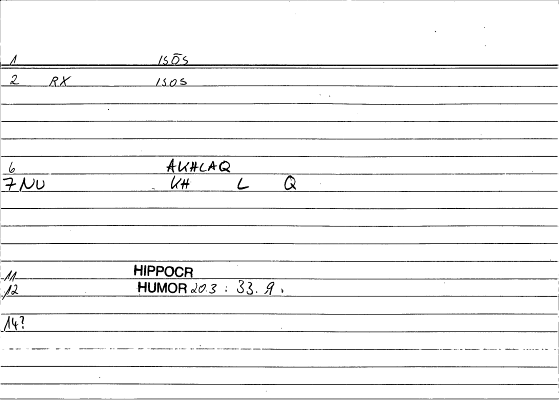 1 ISŌS
2 RX ISOS
6 AKHLAQ
7 NU KH L Q
11 HIPPOCR
12 HUMOR 20.3 : 33.9.
14?